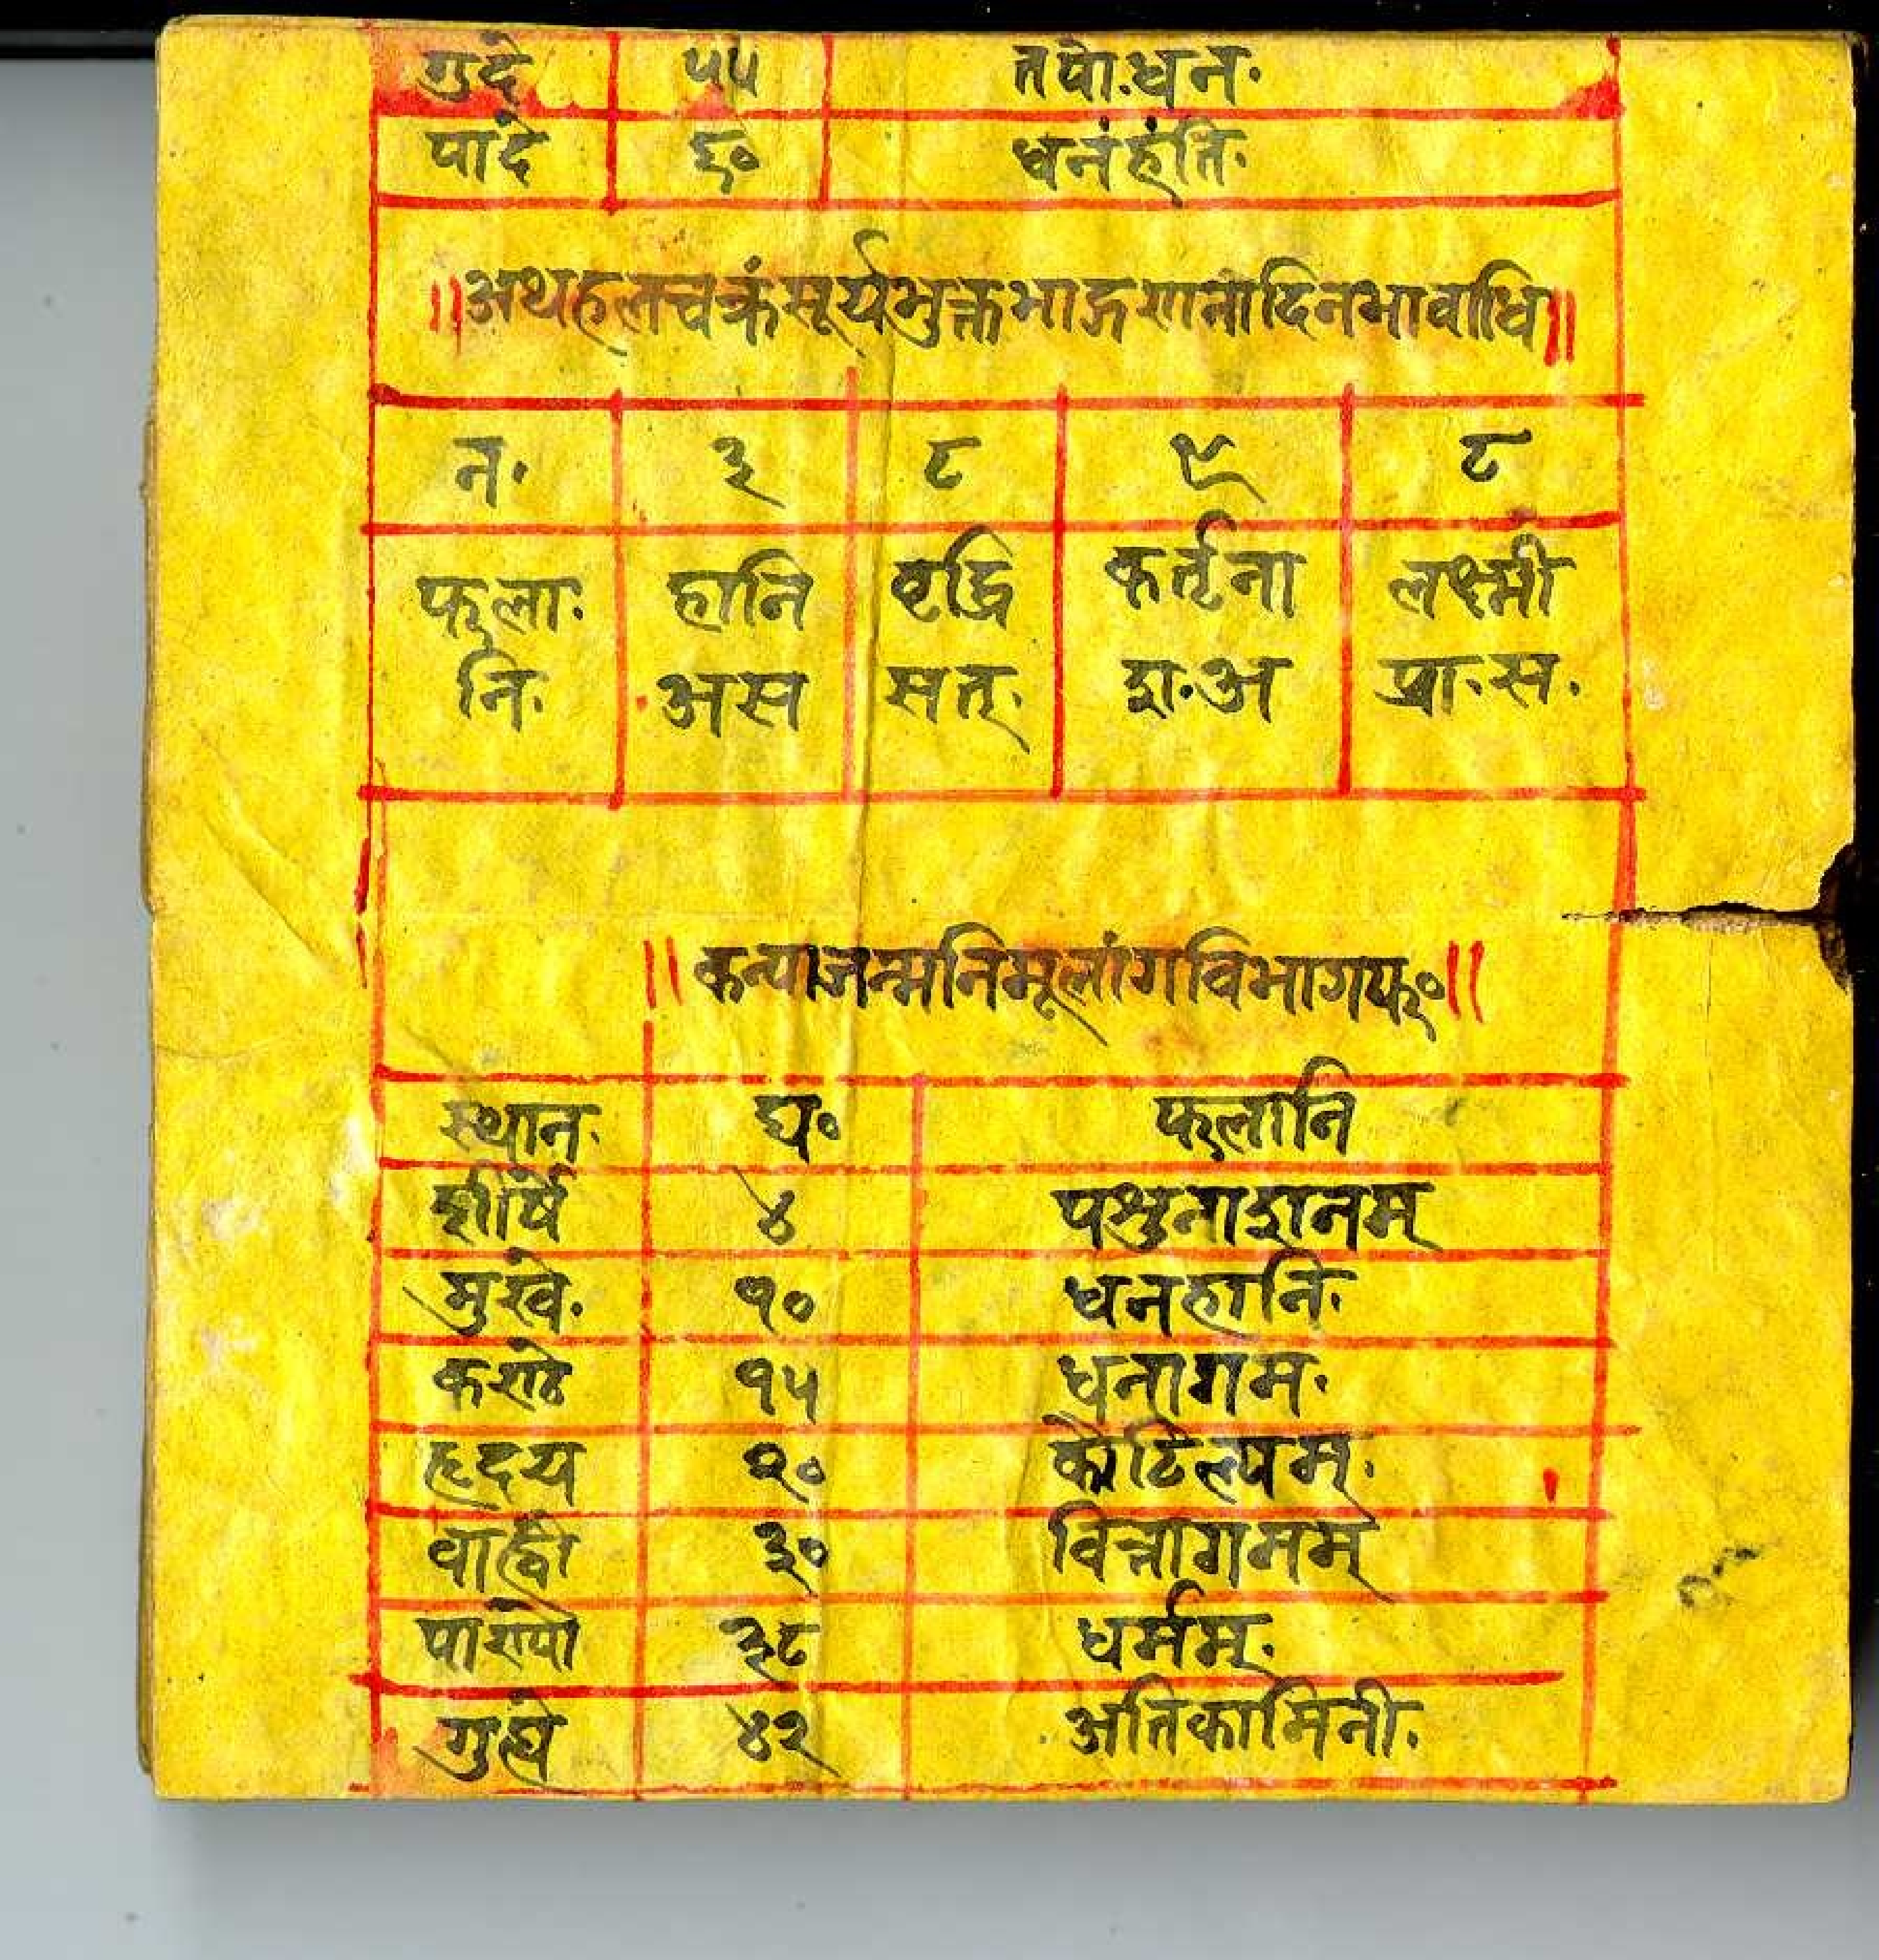 गुदे ५५ तपोधन॰
पादे ६० धनंहंति॰
॥अथहलचक्रंसूर्यभुक्तभाद्गणनोदिनभावाधि॥
न॰ ३ ८ ९ ८
फला॰ हानि वृद्धि कर्तृना लक्ष्मी
नि॰ अस सत् शा॰अ प्रा॰स॰
॥कन्याजन्मनिमूलांगविभागफ०॥
स्थान॰ घ० फलानि
शीर्षे ४ पशुनाशनम्
मुखे॰ १० धनहानि॰
कण्ठे १५ धनागम॰
हृदय २० कौटिल्यम्॰
वाह्वो ३० वित्तागमम्
पाण्यो ३८ धर्मम्॰
गुह्ये ४२ अतिकामिनी॰